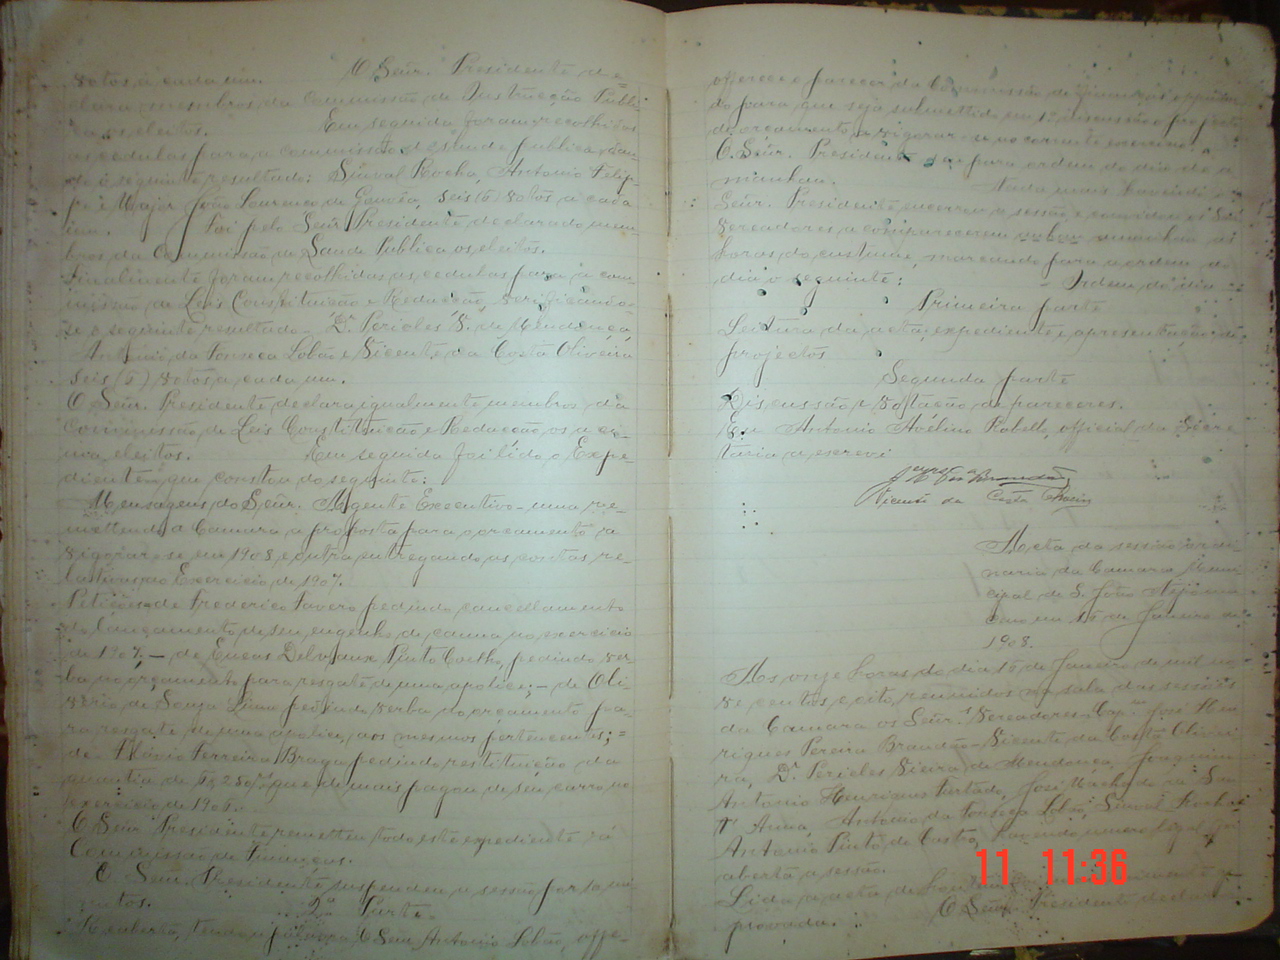 votos, a cada um. O Senr. Presidente de-
clara membros da Commissão de Instrucção Publi-
ca os eleitos. Em seguida foram recolhidas
as cedulas para a commissão de saude publica, dan-
do o seguinte resultado: Sinval Rocha, Antonio Filip-
pe e Major João Lourenço de Gouvêa, seis (6) votos a cada
um. Foi pelo Senr. Presidente declarado mem-
bros da Commissão de Saude Publica os eleitos.
Finalmente foram recolhidas as cedulas para a com-
missão de Leis Constituição e Redacção, verificando-
se o seguinte resultado - Dr. Pericles V. de Mendonça,
Antonio da Fonseca Lobão e Vicente da Costa Oliveira
seis (6) votos a cada um.
O Senr. Presidente declara igualmente membros da
Commissão de Leis Constituição e Redacção, os
eleitos. Em seguida foi lido o Expe-
diente que constou do seguinte:
Mensagens do Senr. Agente Executivo - uma re-
mettendo a Camara a proposta para o orçamento a
vigorar-se em 1908, e outra entregando as contas re-
lativas ao Exercicio de 1907.
Petições de Frederico Favero pedindo cancellamento
do lançamento de seu engenho de canna no exercicio
de 1907, - de Eucas Delvaux Pinto Coelho, pedindo ver-
ba no orçamento para resgate de uma apolice; - de Oli-
verio de Souza Lima pedindo verba no orçamento pa-
ra resgate de uma apolice, aos mesmos pertencentes; =
de Flávio Ferreira Braga pedindo restituição da
quantia de que de mais pagou de seu carro no
exercicio de 1906.
O Senr. Presidente remetteu todo este expediente á
Commissão de Finanças.
O Senr. Presidente suspendeu a sessão por
minutos.
2ª Parte.
Reaberta, tendo a palavra O Senr. Antonio Lobão, offe-
offerece o parecer da Commissão de Finanças
do para que seja submettido em 1ª discussão o projecto
de orçamento a vigorar-se no corrente exercicio.
O Senr. Presidente para ordem do dia de a
manhan. Nada mais havendo o
Senr. Presidente encerrou a sessão e convidou os Senrs.
Vereadores a comparecerem amanhan as
horas do costume, marcando para a ordem do
dia o seguinte: Ordem do dia
Primeira parte
Leitura da acta, expediente, apresentação de
projectos
Segunda parte
Discussão e votação de pareceres.
Eu Antonio Avelino Rabello, official da Secre-
taria a escrevi
Vicente da Costa Oliveira
Acta da sessão ordi-
naria da Camara Muni-
cipal de S. João Nepomu-
ceno em 16 de Janeiro de
1908.
As onze horas do dia 16 de Janeiro de mil no-
ve centos e oito, reunidos na sala das sessões
da Camara os Senrs. Vereadores - Capm. José Hen
riques Pereira Brandão - Vicente da Costa Olivei
ra, Dr. Pericles Vieira de Mendonça, Joaquim
Antonio Henriques Furtado, José Machado de San
t' Anna, Antonio da Fonseca Lobão, Sinval Rocha e
Antonio Pinto da Costa, havendo numero legal foi
aberta a sessão.
Lida a acta da
provada. O Senr. Presidente declara
11 11:36